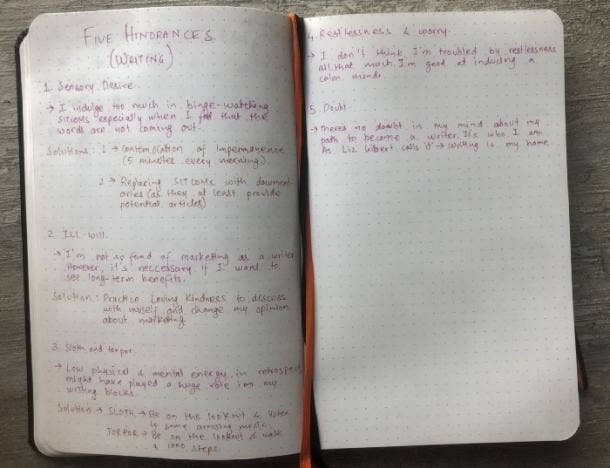 FIVE HINDRANCES
(WRITING)
1. Sensory Desire
→ I indulge too much in binge-watching
sitcoms especially when I feel that the
words are not coming out
Solutions: 1 → Contemplation of Impermanence
(5 minutes every morning)
2 → Replacing SITCOMS with document
aries (as they at least provide
potential articles)
2. Ill-will
→ I'm not so fond of marketing as a writer
However, it's neccessary if I want to
see long-term benefits.
Solution: Practice Loving Kindness to discuss
with myself and change my opinion
about marketing
3. Sloth and torpor
→ Low physical & mental energy, in retrospect
might have played a huge role in my
writing blocks.
Solution → SLOTH → Be on the lookout & listen
to some amazing music
TORPOR → Be on the lookout & walk
a 1000 steps.
4. Restlessness & worry.
→ I don't think I'm troubled by restlessness
all that much. I'm good at inducing a
calm mind.
5. Doubt
→ There's no doubt in my mind about my
path to become a writer. It's who I am
As Liz Gilbert calls it → writing is my home